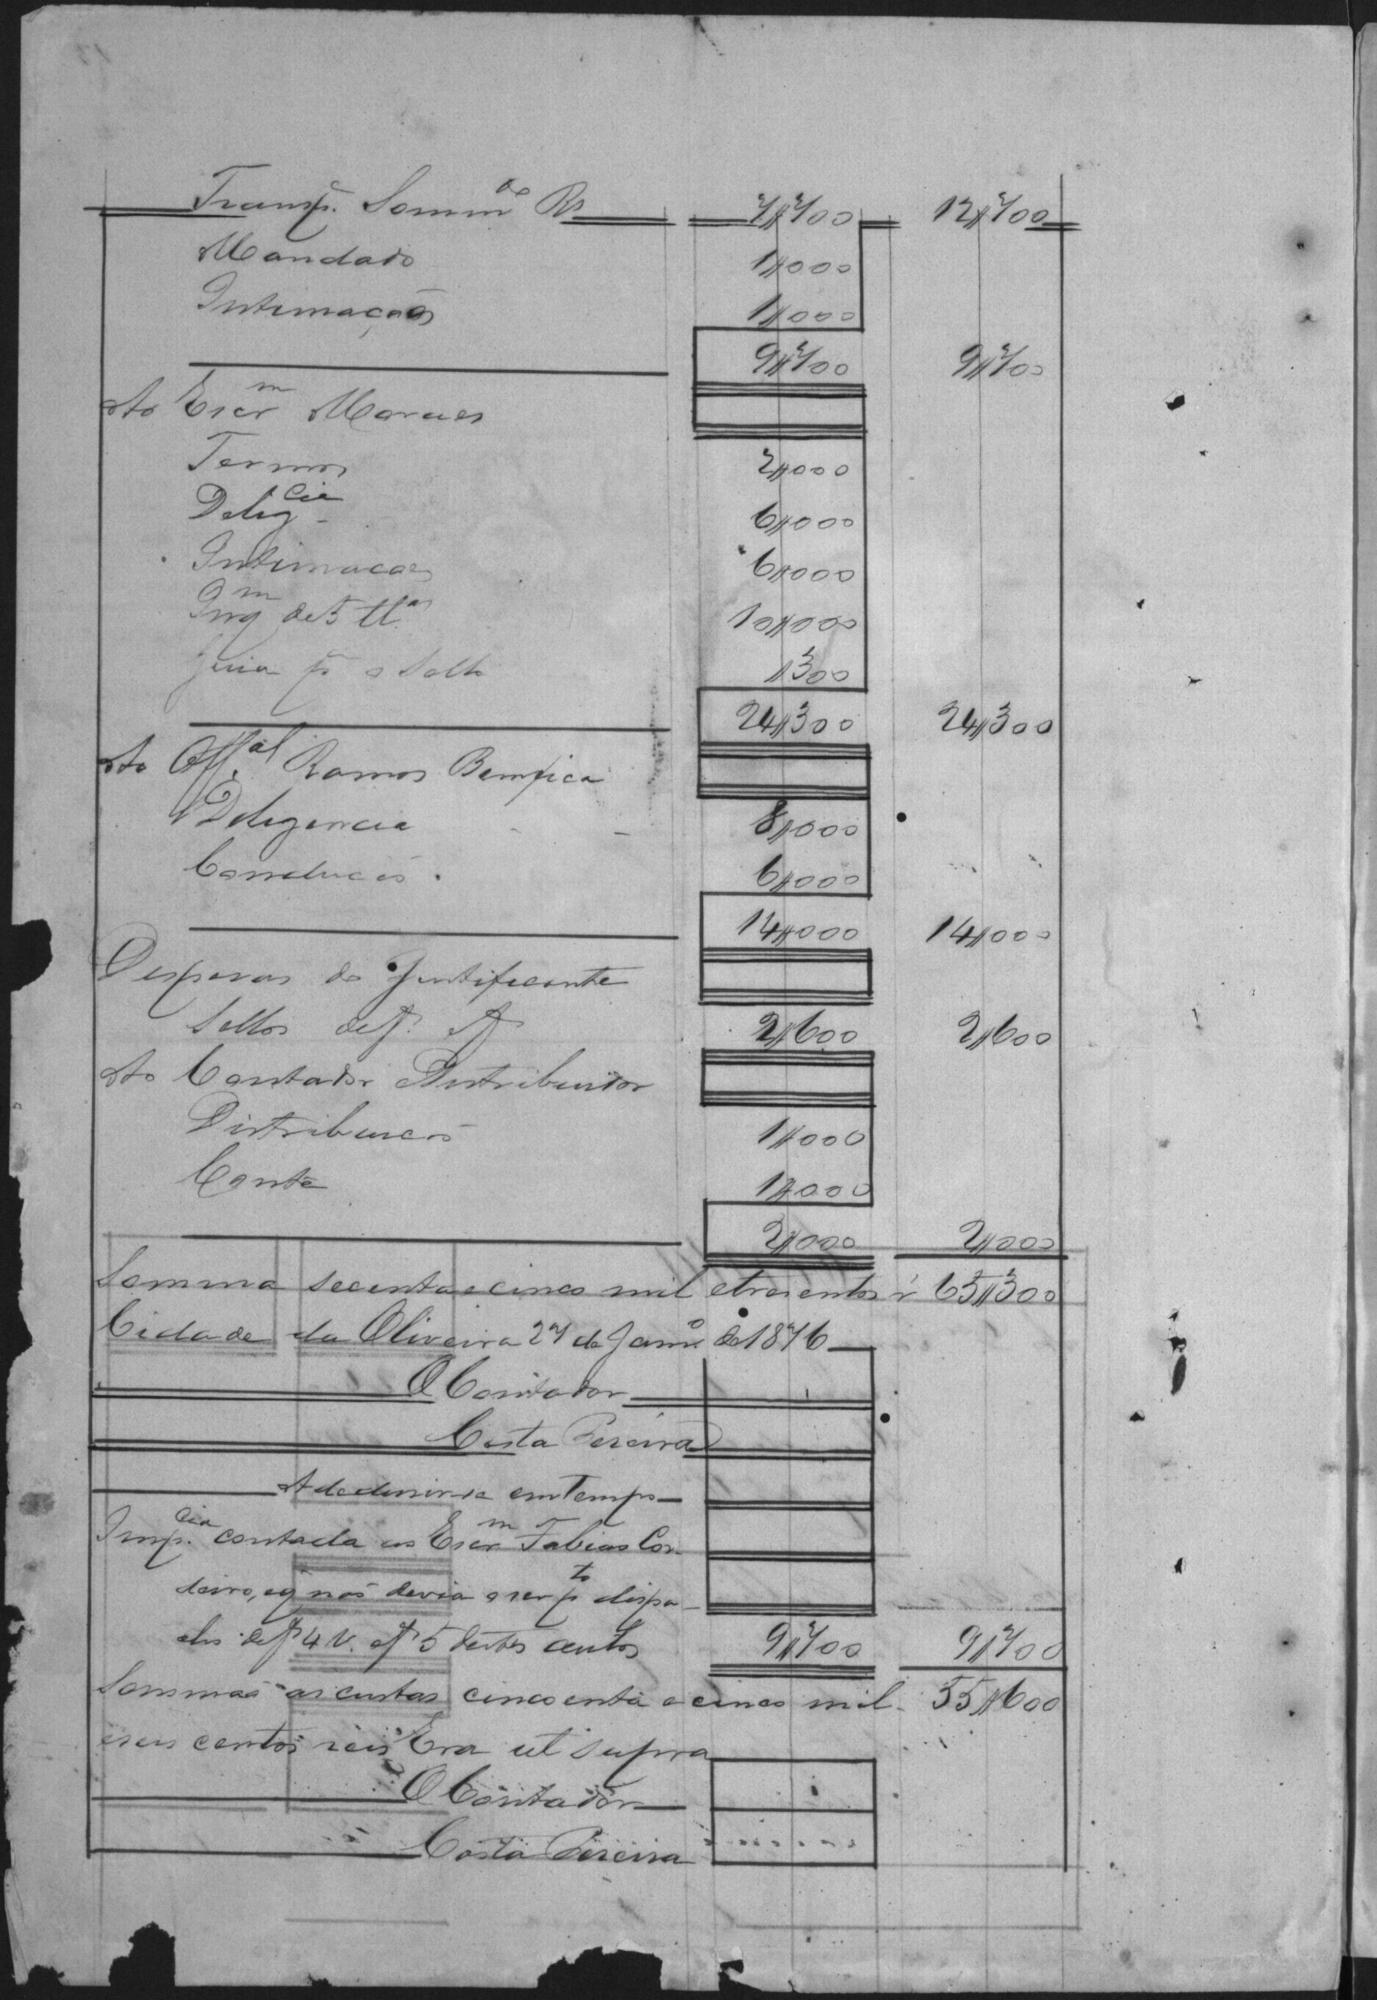 Transp. Somm^as Rs 7,,700 12,,700
Mandado 1,,000
Intimação 1,,000
9,,700 9,,700
Ao Escr^m Moraes
Termos 2,,000
Delig^cia 6,,000
Intimacoes 6,,000
Inq^m de 5 tt^as 10,,000
Guia p^a o Sello ,,300
24,,300 24,,300
Ao Off^al Ramos Bemfica
Deligencia 8,,000
Conducão 6,,000
14,,000 14,,000
Despesas do Justificante
Sellos de f. af 2,,600 2,,600
Ao Contador Distribuidor
Distribuicão 1,,000
Conta 1,,000
2,,000 2,,000
Somma secenta e cinco mil e tresentos r^s 65,,300
Cidade da Oliveira 27 de Jan^ro de 1876
O Contador
Costa Pereira
Adeduzir-se em tempo
Imp^cia contada ao Escr^m Fabias Cor-
deiro, e q' não devia o ser p^to
de f 4 v. af 5 destes autos 9,,700 9,,700
Sommão as custas cincoenta e cinco mil 55,,600
e seis centos reis Era ut supra
O Contador
Costa Pereira